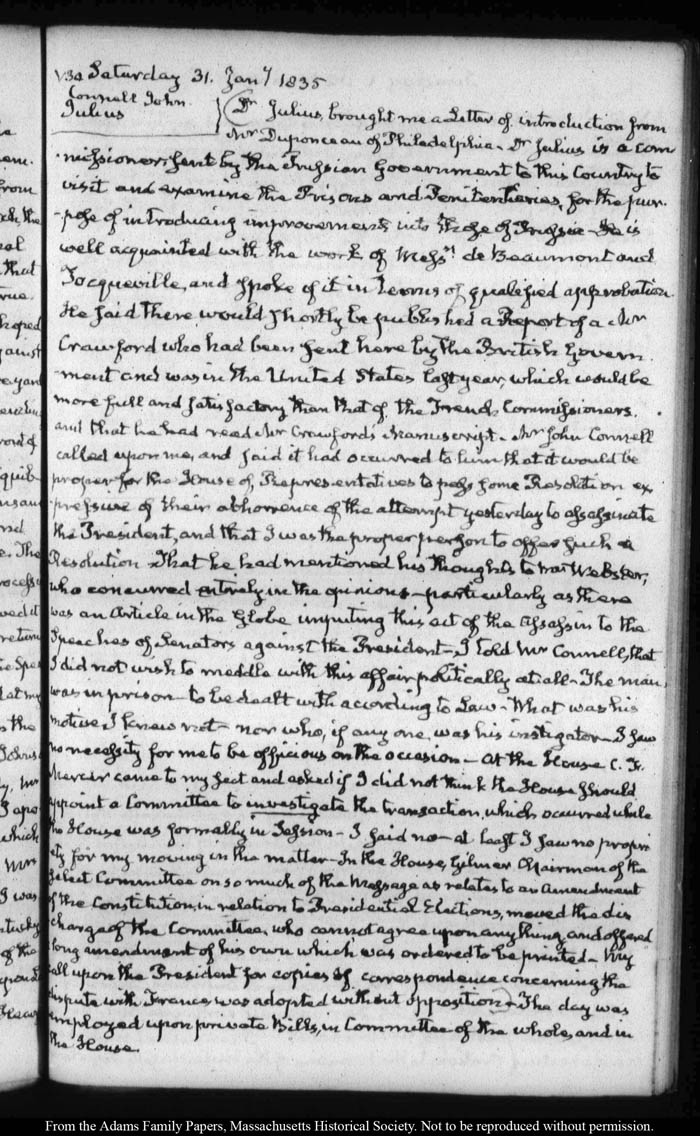 V. 30. Saturday 31. Jany 1835
Connell John.
Julius
Dr Julius, brought me a Letter of introduction from
Mr Duponceau of Philadelphia. Dr Julius is a com
missioner sent by the Prussian Government to this Country to
visit and examine the Prisons and Penitentiaries, for the pur-
pose of introducing improvements into those of Prussia. He is
well acquainted with the work of Messrs de Beaumont and
Tocqueville, and spoke of it in terms of qualified approbation.
He said there would shortly be published a Report of a Mr
Crawford who had been sent here by the British Govern.
ment and was in the United States last year, which would be
more full and satisfactory than that of the French Commissioners.
and that he had read Mr Crawford's Manuscript. Mr John Connell
called upon me, and said it had occurred to him that it would be
proper for the House of Representatives to pass some Resolution ex
pressive of their abhorrence of the attempt yesterday to assassinate
the President, and that I was the proper person to offer such a
Resolution. That he had mentioned his thoughts to Mr Webster,
who concurred entirely in the opinion - particularly as there
was an Article in the Globe imputing this act of the Assassin to the
Speeches of Senators against the President - I told Mr Connell, that
I did not wish to meddle with this affair politically at all - The man,
was in prison - to be dealt with according to Law - What was his
motive I knew not - nor who, if any one, was his instigator - I saw
no necessity for me to be officious on the occasion - At the House C. F.
Mercer came to my seat and asked if I did not think the House should
appoint a Committee to investigate the transaction, which occurred while
the House was formally in Session - I said no - at least I saw no propri
ety for my moving in the matter - In the House, Gilmer Chairman of the
Select Committee on so much of the Message as relates to an Amendment
of the Constitution, in relation to Presidential Elections, moved the dis
charge of the Committee, who cannot agree upon any thing, and offered
a long amendment of his own which was ordered to be printed - My
call upon the President for copies of correspondence concerning the
dispute with France, was adopted without opposition - The day was
employed upon private Bills, in Committee of the whole, and in
the House.
From the Adams Family Papers, Massachusetts Historical Society. Not to be reproduced without permission.